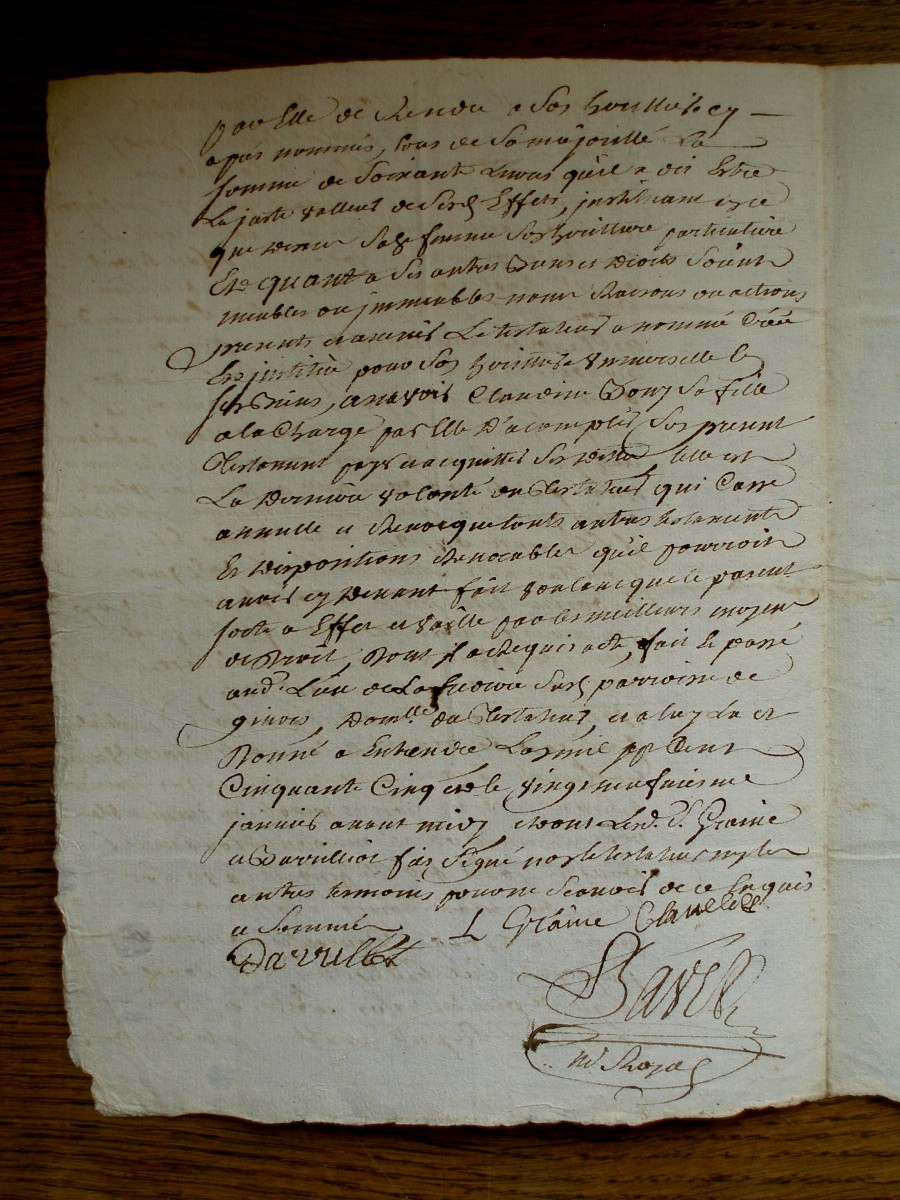 par Elle de Rendre a Son heritiere cy
apres nommée, lors de Sa majorité La
somme de Soixante Livres qu'il a dit Estre
La juste valleur de Effets,
que Sa femme Son heritiere particuliere
Et quant a Ses autres Biens et Droits Soient
meubles ou immeubles noms Raisons ou actions
presents et avenir Le testateur a nommé Créé
Et institué pour Son heritiere Universelle
Biens, a Savoir Claudine Sa fille
a la Charge par Elle D'acomplir Son present
Testament payer et acquitter Ses Dettes telle est
La Derniere volonté du Testateur qui Casse
annulle et Revocque touts autres testaments
Et Dispositions Revocables qu'il pourroit
avoir cy Devant fait voulant que le present
sorte a Effet et vaille par les meilleurs moyens
de Droit, Dont il a Requis acte, fait Et passé
aud. Lieu de La parroisse de
Domlle du Testateur, et a luy Lu et
Donné a Entendre L'an mil sept Cent
Cinquante Cinq et le vingt neufvieme
janvier avant midy, et ont Led. Sr. Graine
et Davilliot Signé non le testateur ny les
autres temoins pour ne Scavoir de ce Enquis
et Sommés
L Graine
Davilliot
Royal